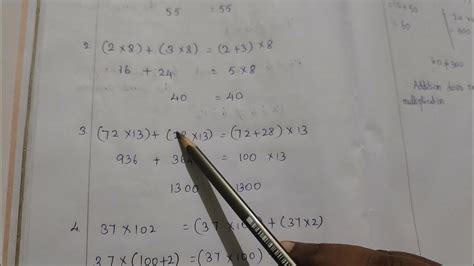 55 = 55
2 (2×8) + (3×8) = (2+3)×8
16 + 24 = 5×8
40 = 40
3 (72×13) + (28×13) = (72+28)×13
936 + 364 = 100 ×13
1300 1300
4. 37×102 = (37×100) + (37×2)
37×(100+2) = (37×100)
= 60
Addition
multiplication